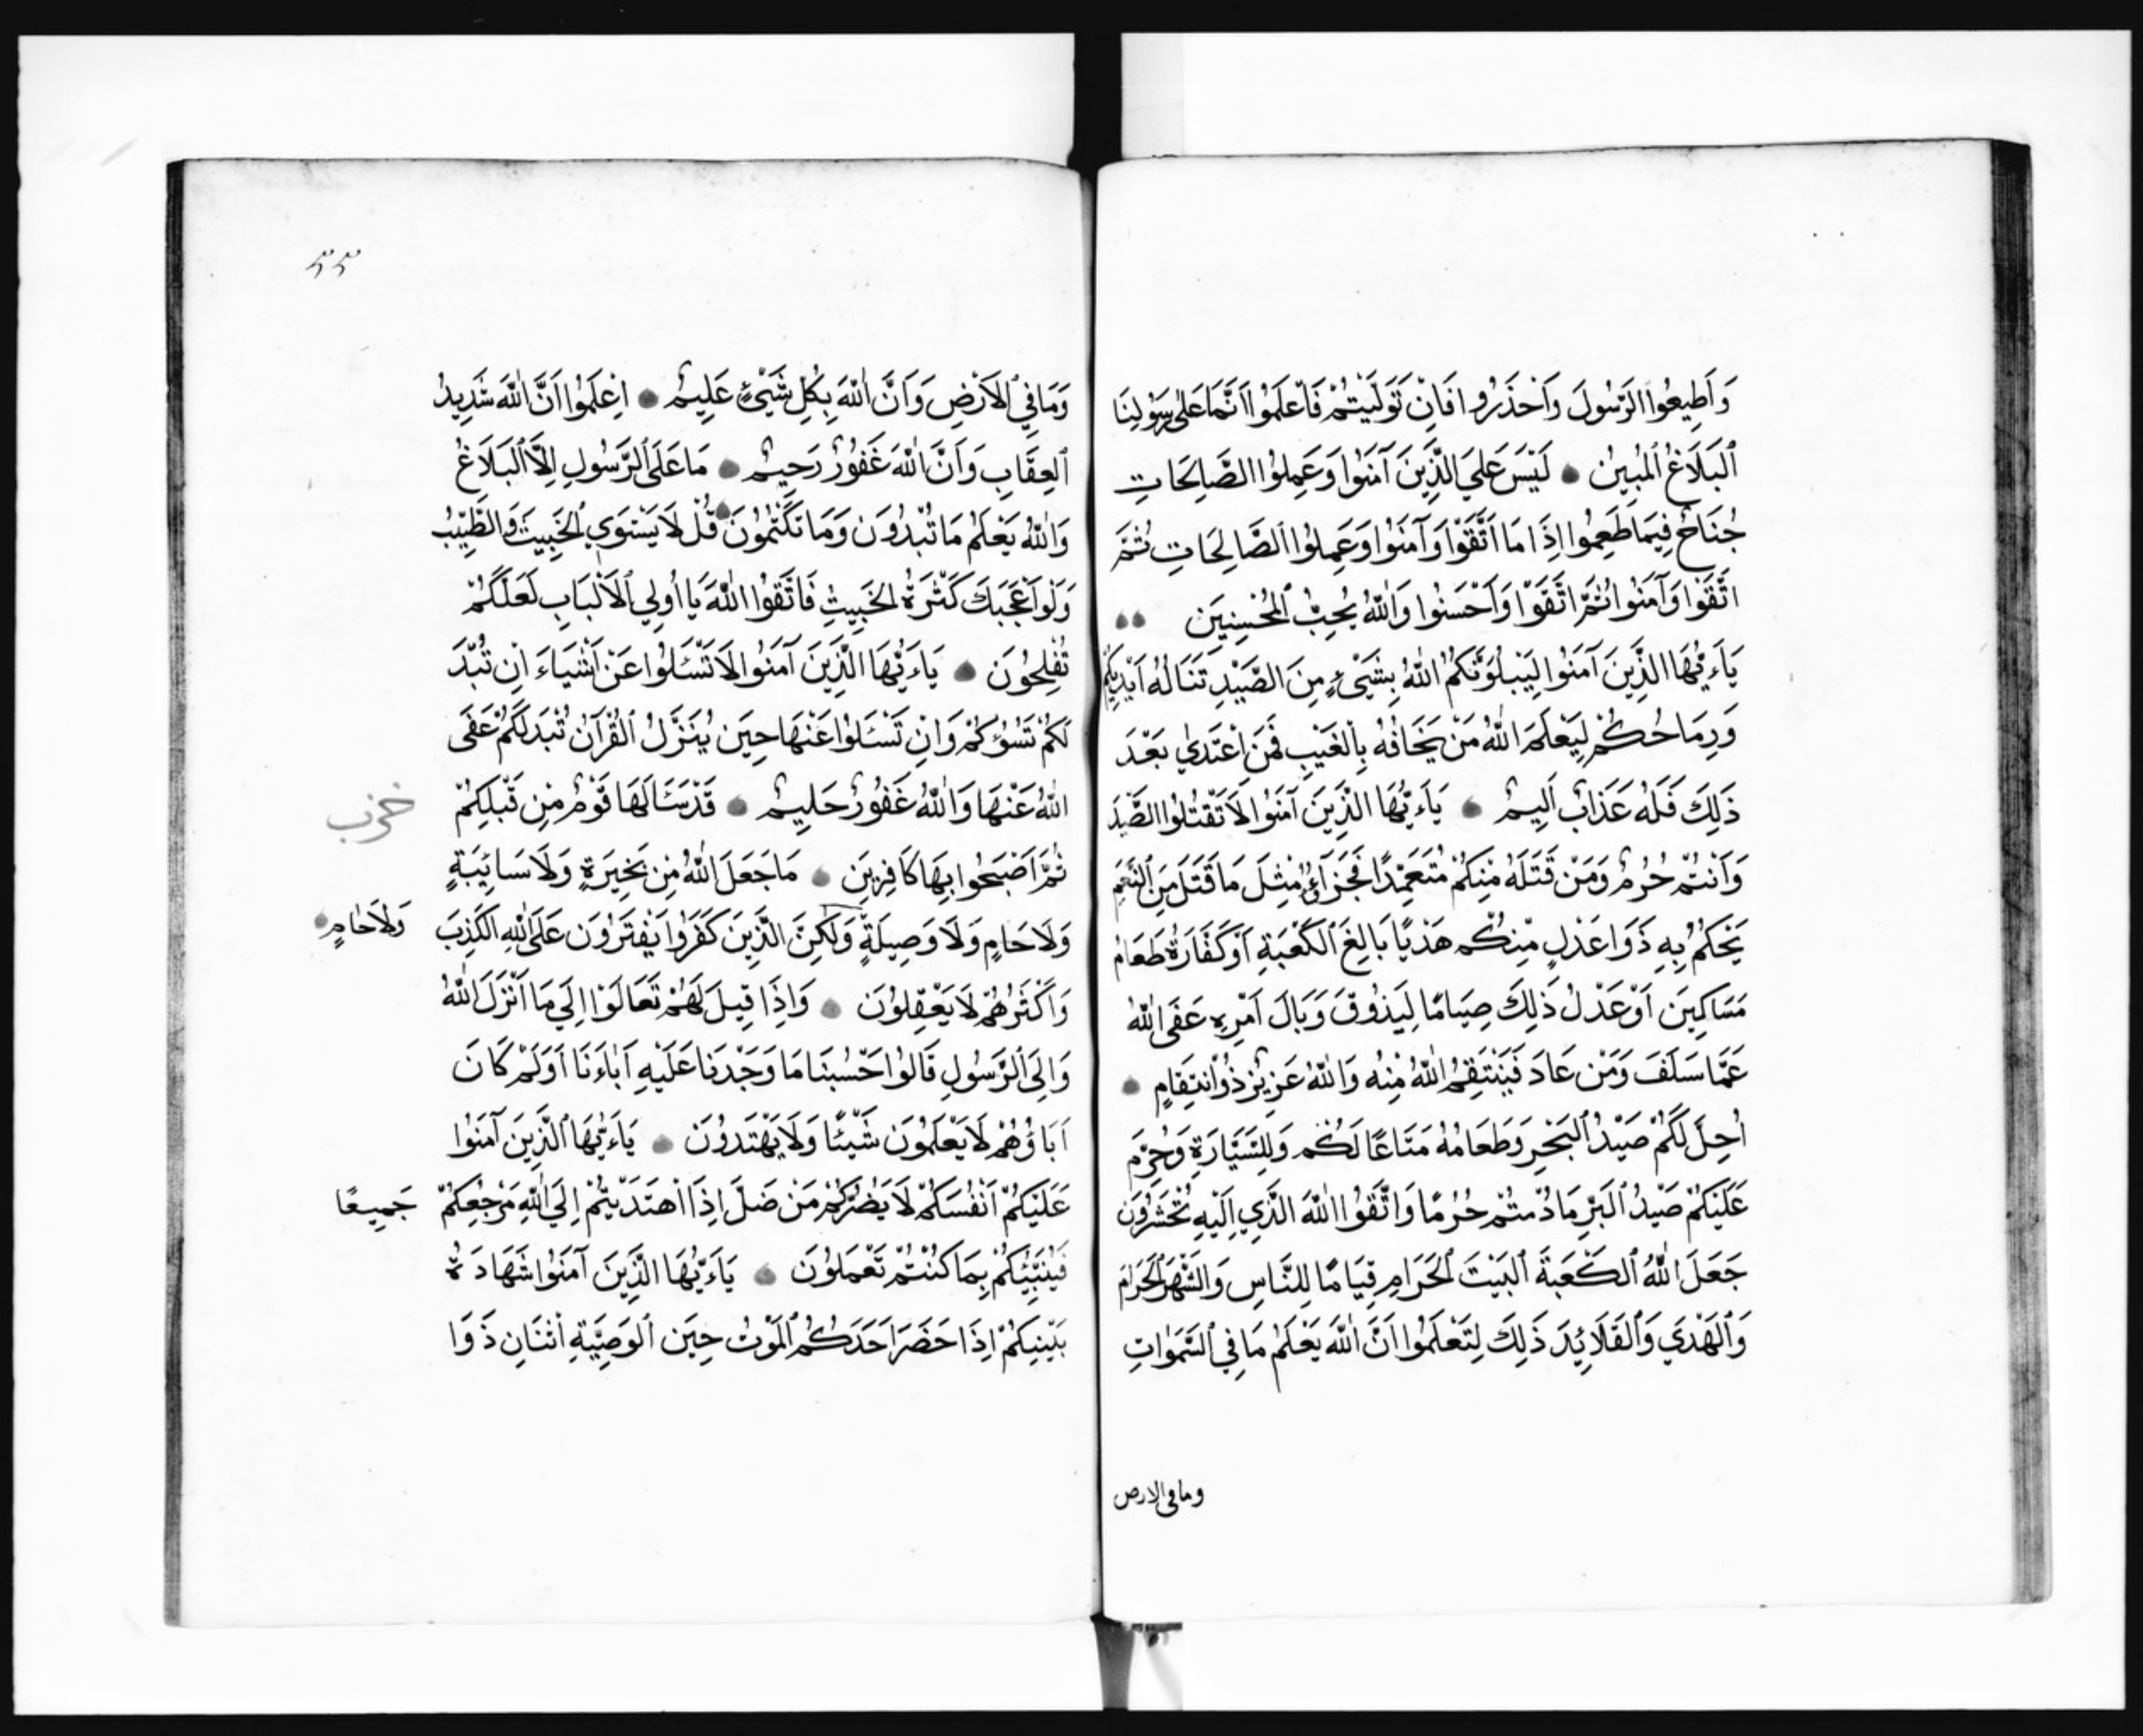 وَأَطِيعُوا الرَّسُولَ وَاَحْذَرُوا فَاِنْ تَوَلَّيْتُمْ فَاعْلَمُوا اَنَّمَا عَلَى رَسُوْلِنَا
اٰلبَلَاغُ اٰلمُبِيْنُ لَيْسَ عَلَيَ الَّذِينَ آمَنُوا وَعَمِلُوا الصَّالِحَاتِ
جُنَاحٌ فِيمَا طَعِمُوا اِذَا مَا اَتَّقَوْا وَآمَنُوا وَعَمِلُوا الصَّالِحَاتِ ثُمَّ
اتَّقَوْا وَآمَنُوا ثُمَّ اتَّقَوْا وَأَحْسَنُوا وَاللّٰهُ يُحِبُّ اٰلمُحْسِنِينَ
يَآءَيُّهَا الَّذِينَ آمَنُوا لِيَبْلُوَنَّكُمُ اللّٰهُ بِشَيْءٍ مِنَ الصَّيْدِ تَنَالُهُ اَيْدِيكُمْ
وَرِمَاحُكُمْ لِيَعْلَمَ اللّٰهُ مَنْ يَخَافُهُ بِالْغَيْبِ فَمَنِ اعْتَدٰي بَعْدَ
ذٰلِكَ فَلَهُ عَذَابٌ اَلِيمٌ يَآءَيُّهَا الَّذِينَ آمَنُوا لَا تَقْتُلُوا الصَّيْدَ
وَاَنْتُمْ حُرُمٌ وَمَنْ قَتَلَهُ مِنْكُمْ مُتَعَمِّدًا فَجَزَآءُ مِثْلِ مَا قَتَلَ مِنَ النَّعَمِ
يَحْكُمُ بِهِ ذَوَا عَدْلٍ مِنْكُمْ هَدْيًا بَالِغَ الْكَعْبَةِ اَوْ كَفَّارَةُ طَعَامُ
مَسَاكِينَ اَوْ عَدْلُ ذٰلِكَ صِيَامًا لِيَذُوقَ وَبَالَ اَمْرِهِ عَفَى اللّٰهُ
عَمَّا سَلَفَ وَمَنْ عَادَ فَيَنْتَقِمُ اللّٰهُ مِنْهُ وَاللّٰهُ عَزِيزٌ ذُوْانْتِقَامٍ
اُحِلَّ لَكُمْ صَيْدُ اٰلبَحْرِ وَطَعَامُهُ مَتَاعًا لَكُمْ وَلِلسَّيَّارَةِ وَحُرِّمَ
عَلَيْكُمْ صَيْدُ اٰلبَرِّ مَا دُمْتُمْ حُرُمًا وَاتَّقُوا اللّٰهَ الَّذِي اِلَيْهِ تُحْشَرُونَ
جَعَلَ اللّٰهُ اٰلكَعْبَةَ اٰلبَيْتَ اٰلحَرَامِ قِيَامًا لِلنَّاسِ وَالشَّهْرَ اٰلحَرَامَ
وَاٰلهَدْيَ وَاٰلقَلَائِدَ ذٰلِكَ لِتَعْلَمُوا اَنَّ اللّٰهَ يَعْلَمُ مَا فِي السَّمٰوَاتِ
وما في الارض
٥٥
وَمَا فِي اٰلاَرْضِ وَاَنَّ اللّٰهَ بِكُلِّ شَيْءٍ عَلِيمٌ اِعْلَمُوا اَنَّ اللّٰهَ شَدِيدُ
اٰلعِقَابِ وَاَنَّ اللّٰهَ غَفُورٌ رَحِيمٌ مَا عَلَى الرَّسُولِ اِلَّا اٰلبَلَاغُ
وَاللّٰهُ يَعْلَمُ مَا تُبْدُوْنَ وَمَا تَكْتُمُونَ قُلْ لَا يَسْتَوِي اٰلخَبِيثُ وَالطَّيِّبُ
وَلَوْ اَعْجَبَكَ كَثْرَةُ الخَبِيثِ فَاتَّقُوا اللّٰهَ يَا اُولِي اٰلاَلْبَابِ لَعَلَّكُمْ
تُفْلِحُونَ يَآءَيُّهَا الَّذِينَ آمَنُوا لَا تَسْئَلُوا عَنْ اَشْيَاءَ اِنْ تُبْدَ
لَكُمْ تَسُؤْكُمْ وَاِنْ تَسْئَلُوا عَنْهَا حِيَن يُنَزَّلُ اٰلقُرْآنُ تُبْدَ لَكُمْ عَفَى
اللّٰهُ عَنْهَا وَاللّٰهُ غَفُورٌ حَلِيمٌ قَدْ سَئَالَهَا قَوْمٌ مِنْ قَبْلِكُمْ
ثُمَّ اَصْبَحُوا بِهَا كَافِرِينَ مَا جَعَلَ اللّٰهُ مِنْ بَحِيرَةٍ وَلَا سَائِبَةٍ
وَلَا حَامٍ وَلَا وَصِيلَةٍ وَلٰكِنَّ الَّذِينَ كَفَرُوا يَفْتَرُوْنَ عَلَى اللّٰهِ الْكَذِبَ
وَلَا حَامٍ
وَاَكْثَرُهُمْ لَا يَعْقِلُوْنَ وَاِذَا قِيلَ لَهُمْ تَعَالَوْا اِلَي مَا اَنْزَلَ اللّٰهُ
وَاِلَى الرَّسُولِ قَالُوا حَسْبُنَا مَا وَجَدْنَا عَلَيْهِ اٰبَاءَنَا اَوَلَمْ كَانَ
اٰبَاؤُهُمْ لَا يَعْلَمُوْنَ شَيْئًا وَلَا يَهْتَدُوْنَ يَآءَيُّهَا الَّذِينَ آمَنُوا
عَلَيْكُمْ اَنْفُسَكُمْ لَا يَضُرُّكُمْ مَنْ ضَلَّ اِذَا اهْتَدَيْتُمْ اِلَيَ اللّٰهِ مَرْجِعُكُمْ جَمِيعًا
فَيُنَبِّئُكُمْ بِمَا كُنْتُمْ تَعْمَلُوْنَ يَآءَيُّهَا الَّذِينَ آمَنُوا شَهَادَةُ
بَيْنِكُمْ اِذَا حَضَرَ اَحَدَكُمُ اٰلمَوْتُ حِيَن اٰلوَصِيَّةِ اثْنَانِ ذَوَا